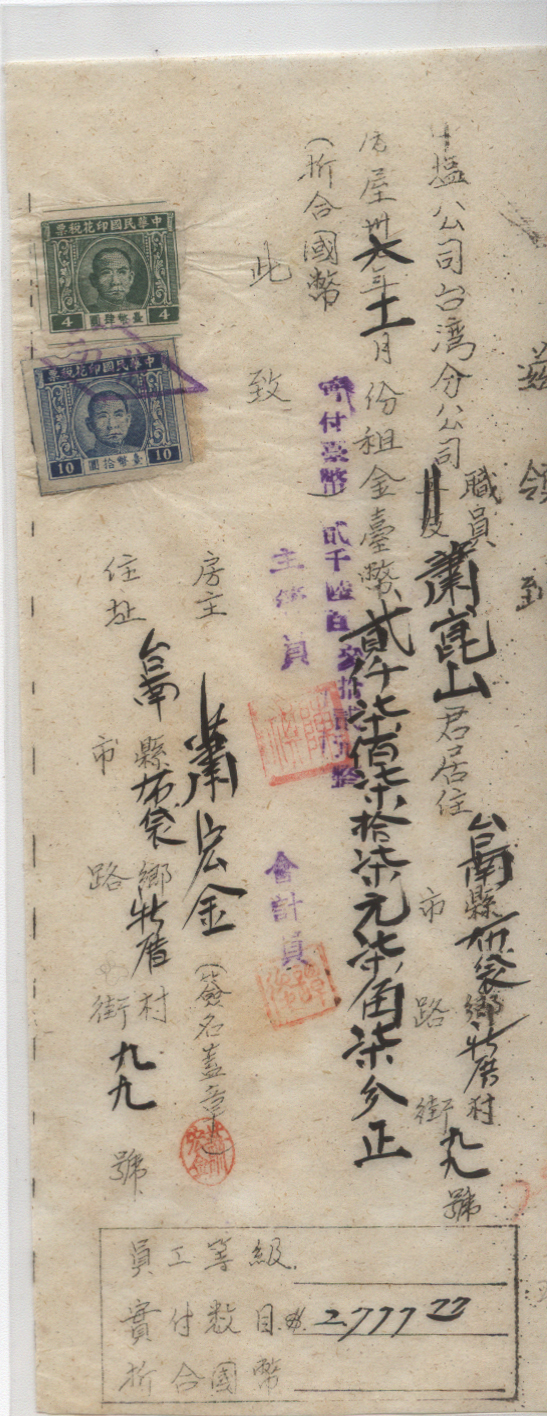 茲領到
中塩公司台湾分公司職員
蕭崑山君居住
台南縣布袋鄉牡厝村
市 路 街九九號
房屋卅六年十一月份租金臺幣貳仟柒佰柒拾柒元柒角柒分正
(折合國幣 )
實付臺幣貳千陸百
此致
主管員
會計員
房主 蕭宏金(簽名蓋章)
住址 台南縣布袋鄉牡厝村
市 路 街九九號
員工等級
實付數目 2,777 77
折合國幣
票稅花印國民華中
4 圓肆幣臺 4
票稅花印國民華中
10 圓拾幣臺 10